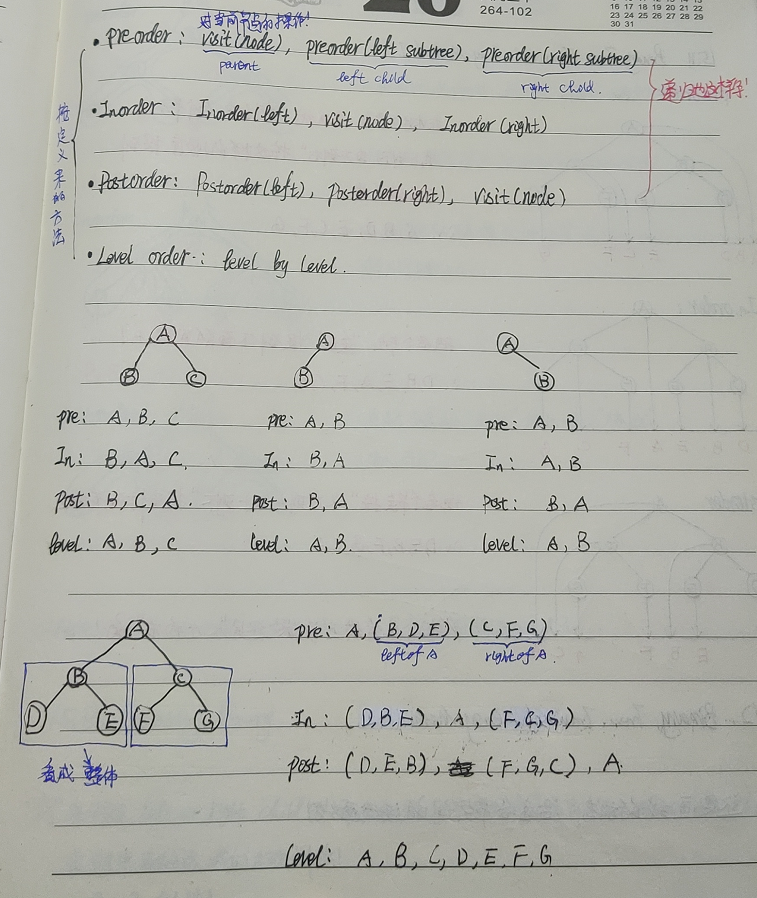 26
264-102
16 17 18 19 20 21 22
23 24 25 26 27 28 29
30 31
对当前节点的操作!
• Preorder: visit(node), preorder(left subtree), preorder(right subtree)
parent left child right chold.
• Inorder: Inorder(left), visit(node), Inorder(right)
• Postorder: Postorder(left), Posterder(right), visit(node)
• Level order: level by level.
按定义来的方法
A A A
B C B B
pre: A, B, C pre: A, B pre: A, B
In: B, A, C. In: B, A In: A, B
Post: B, C, A. Post: B, A Post: B, A
level: A, B, C level: A, B. level: A, B
A
B C
D E F G
看成整体
pre: A, (B, D, E), (C, F, G)
left of A right of A.
In: (D, B, E), A, (F, C, G)
post: (D, E, B), (F, G, C), A.
level: A, B, C, D, E, F, G